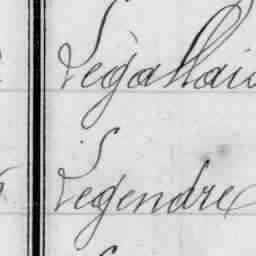 Légallais
Legendre